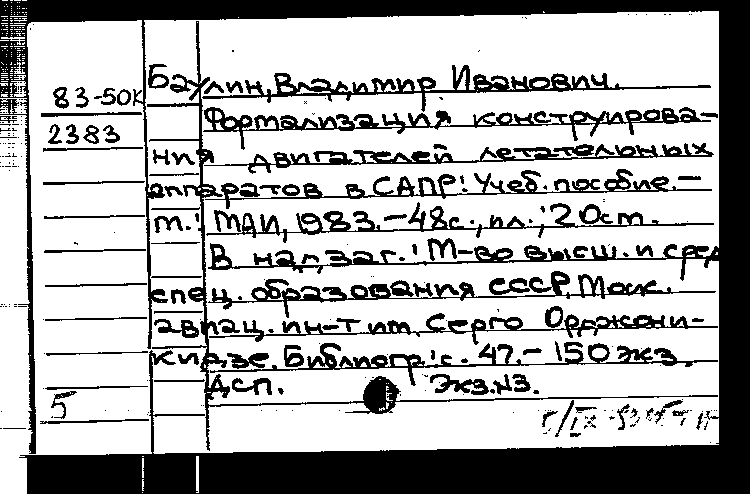 83-50К
2383
Баулин, Владимир Иванович.
Формализация конструирова-
ния двигателей летательных
аппаратов в САПР: Учеб. пособие. —
М.: МАИ, 1983. — 48с.; ил.; 20см.
В надзаг.: М-во высш. и сред
спец. образования СССР, Моск.
авиац. ин-т им. Серго Орджони-
кидзе. Библиогр.: с. 47. — 150 экз.
ДСП. Экз. №3.
5